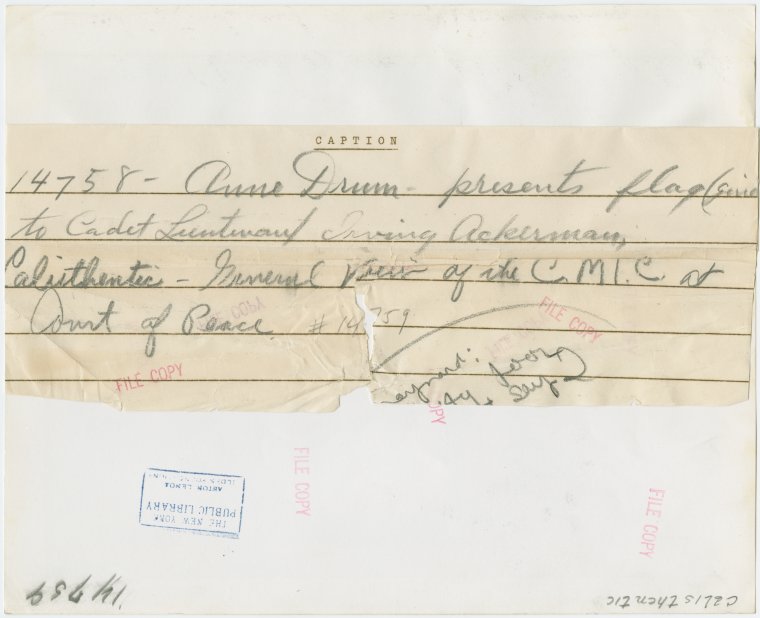 CAPTION
14758- Anne Drum- presents flag
to Cadet Lieutenant Irving Ackerman,
Calisthentic - General View of the C.M.T.C. at
Court of Peace # 14759
FILE COPY
FILE COPY
FILE COPY
FILE COPY
THE NEW YORK
PUBLIC LIBRARY
ASTOR LENOX
14759
Calisthentic